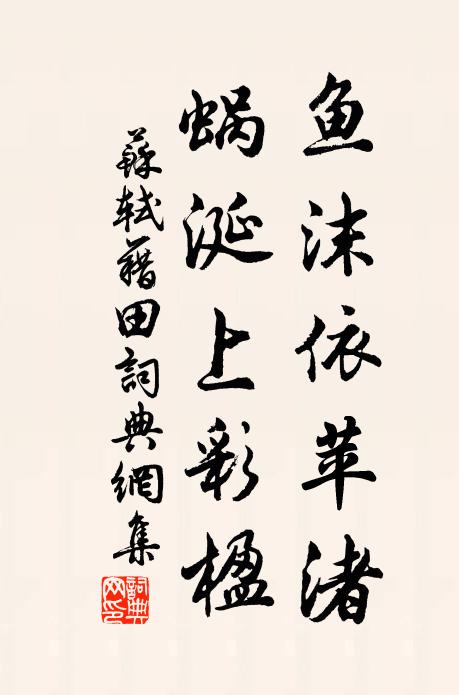 鱼沫依苹渚
蜗涎上彩楹
蘇軾藉田詞典網集